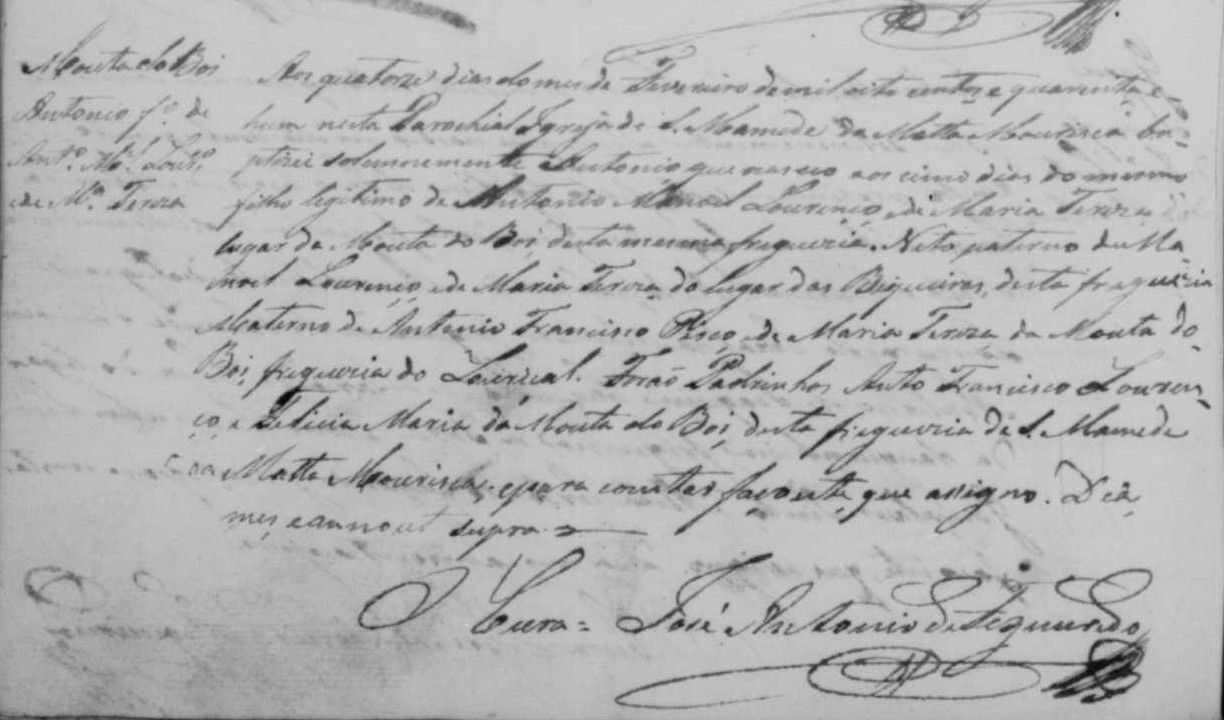 Mouta do Boi
Antonio fº. de
Antº. Mel. Lourço
e de Mª. Tereza
Aos quatorze dias do mes de Fevereiro de mil oito centos e quarenta e
hum nesta Parochial Igreja de S. Mamede da Matta Mourisca ba-
ptizei solemnemente Antonio que nasceo aos cinco dias do mesmo
filho legitimo de Antonio Manoel Lourenço, e de Maria Tereza do
lugar da Mouta do Boi, desta mesma freguezia. Neto paterno de Ma-
noel Lourenço e de Maria Tereza do lugar das desta freguezia
Materno de Antonio Francisco e de Maria Tereza da Mouta do
Boi, freguezia do Louriçal. Forão Padrinhos Anto Francisco Louren-
ço e Felicia Maria da Mouta do Boi, desta freguezia de S. Mamede
da Matta Mourisca. e para constar faço este, que assigno. Dia,
mes, e anno ut supra. =
O Cura = José Antonio de